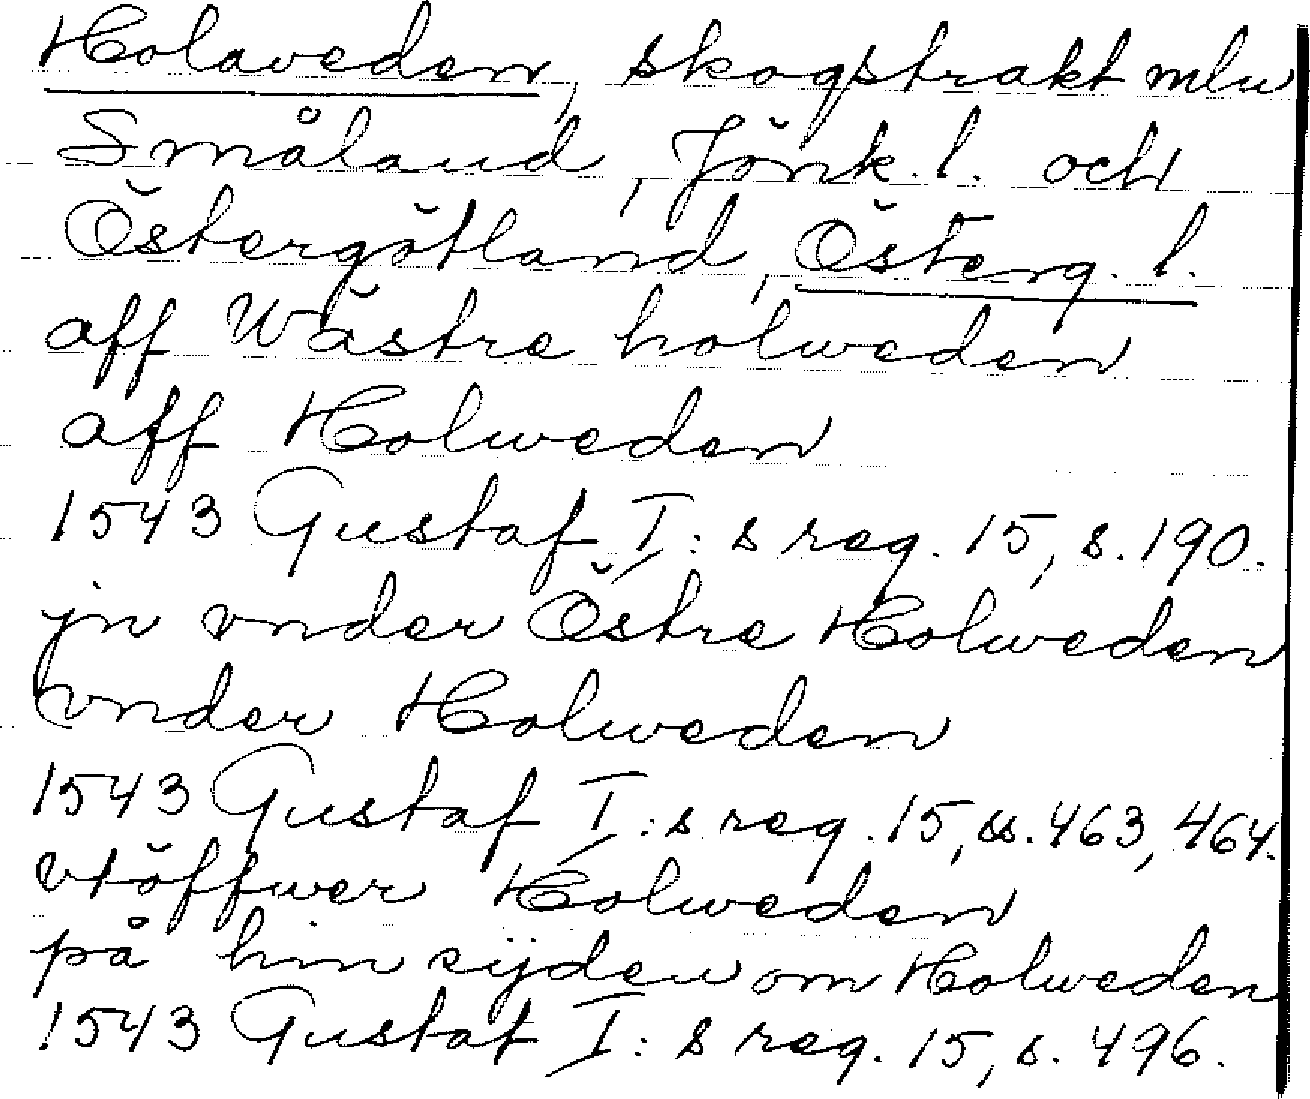 Holaveden, skogstrakt mln
Småland, Jönk. l. och
Östergötland, Österg. l.
aff Wästre holweden
aff Holweden
1543 Gustaf I:s reg. 15, s. 190.
jn vnder Östre Holweden
vnder Holweden
1543 Gustaf I:s reg. 15, ss. 463, 464.
vtöffwer Holweden
på hin sijden om Holweden
1543 Gustaf I:s reg. 15, s. 496.